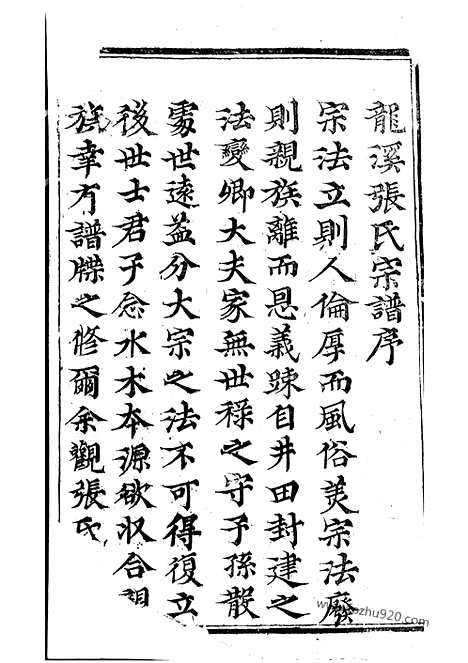 龍溪張氏宗譜序
宗法立則人倫厚而風俗美宗法廢
則親族離而恩義踈自井田封建之
法變卿大夫家無世祿之守子孫散
處世遠益分大宗之法不可得復立
後世士君子念水木本源欲収合
族幸有譜牒之修爾余觀張氏
zhu920.com